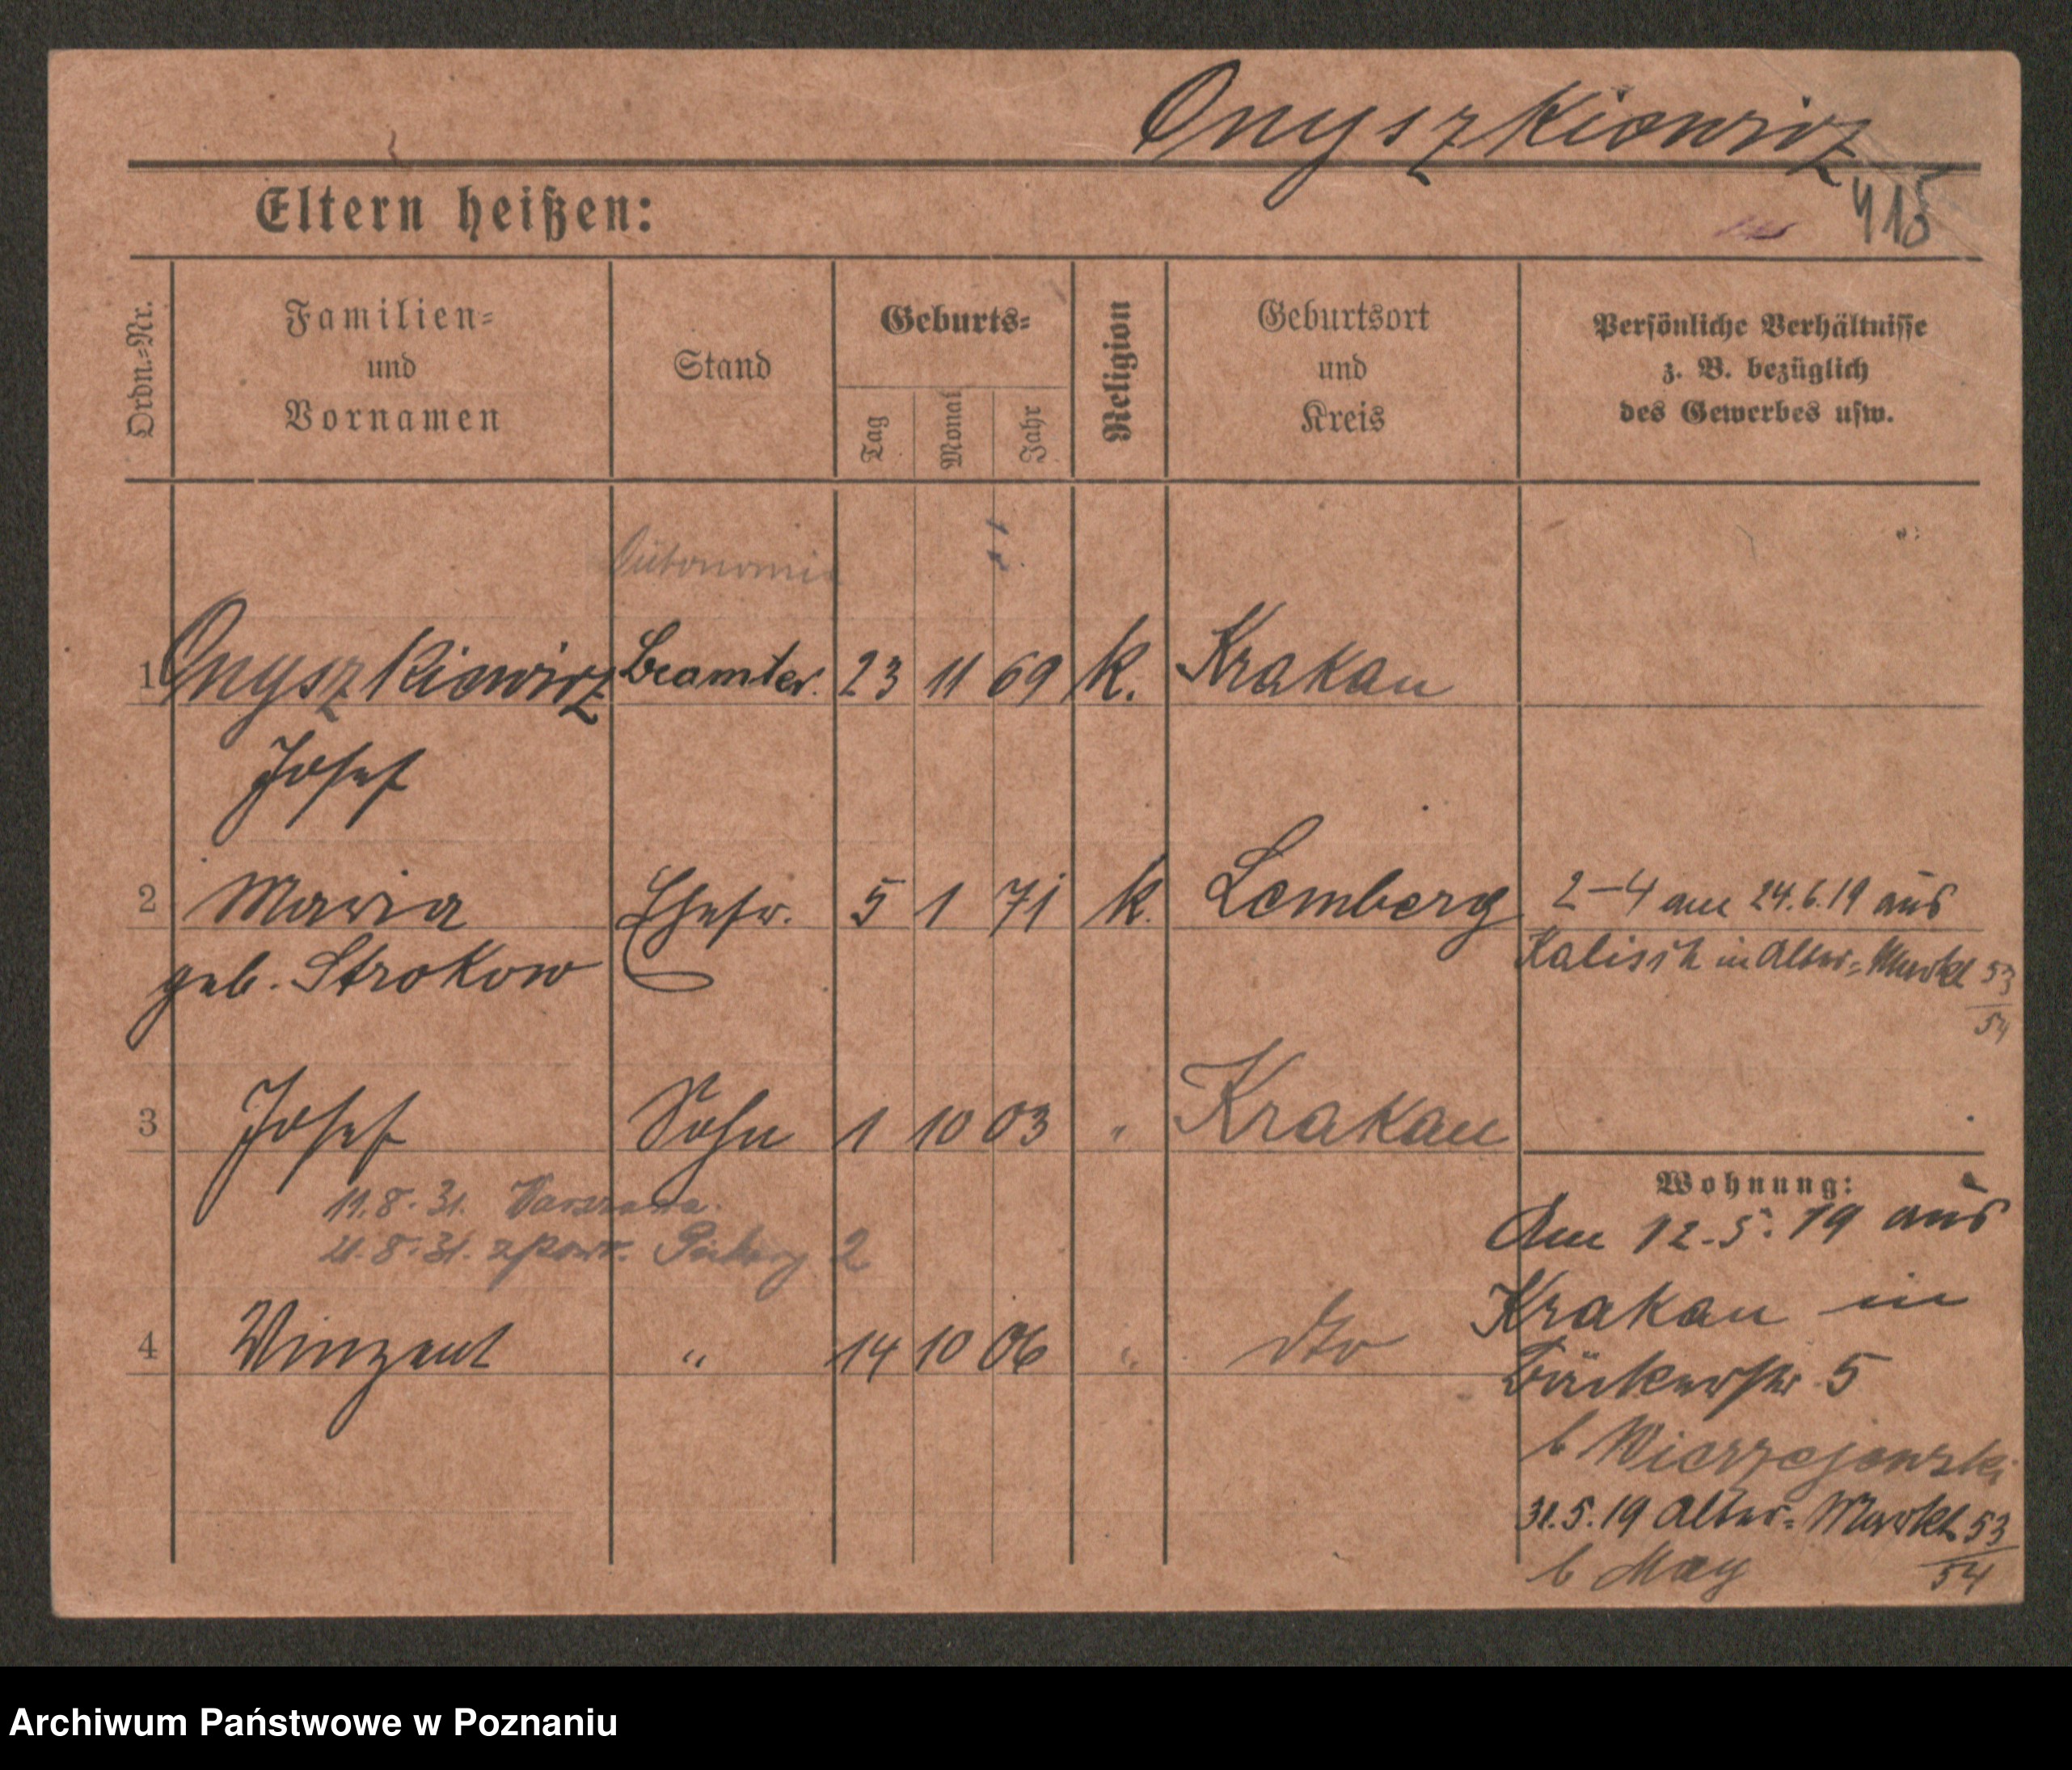 Onyszkiewicz
Eltern heißen:
415
Ordn.=Nr.
Familien=
und
Vornamen
Stand
Geburts=
Tag
Monat
Jahr
Religion
Geburtsort
und
Kreis
Persönliche Verhältnisse
z. B. bezüglich
des Gewerbes usw.
1 Onyszkiewicz Beamter. 23 11 69 K. Krakau
Josef
2 Maria Ehefr. 5 1 71 k. Lemberg 2–4 am 24.6.19 aus
geb. Strokow Kalisch in Alter=Markt 53/54
3 Josef Sohn 1 10 03 " Krakau
11.8.31. Warszawa.
21.8.31. z powr. 2
4 Vinzent " 14 10 06 " dto
Wohnung:
Am 12.5.19 aus
Krakau in
Bäckerstr. 5
b Wierzejewski
31.5.19 Alter=Markt 53/54
b May
Archiwum Państwowe w Poznaniu